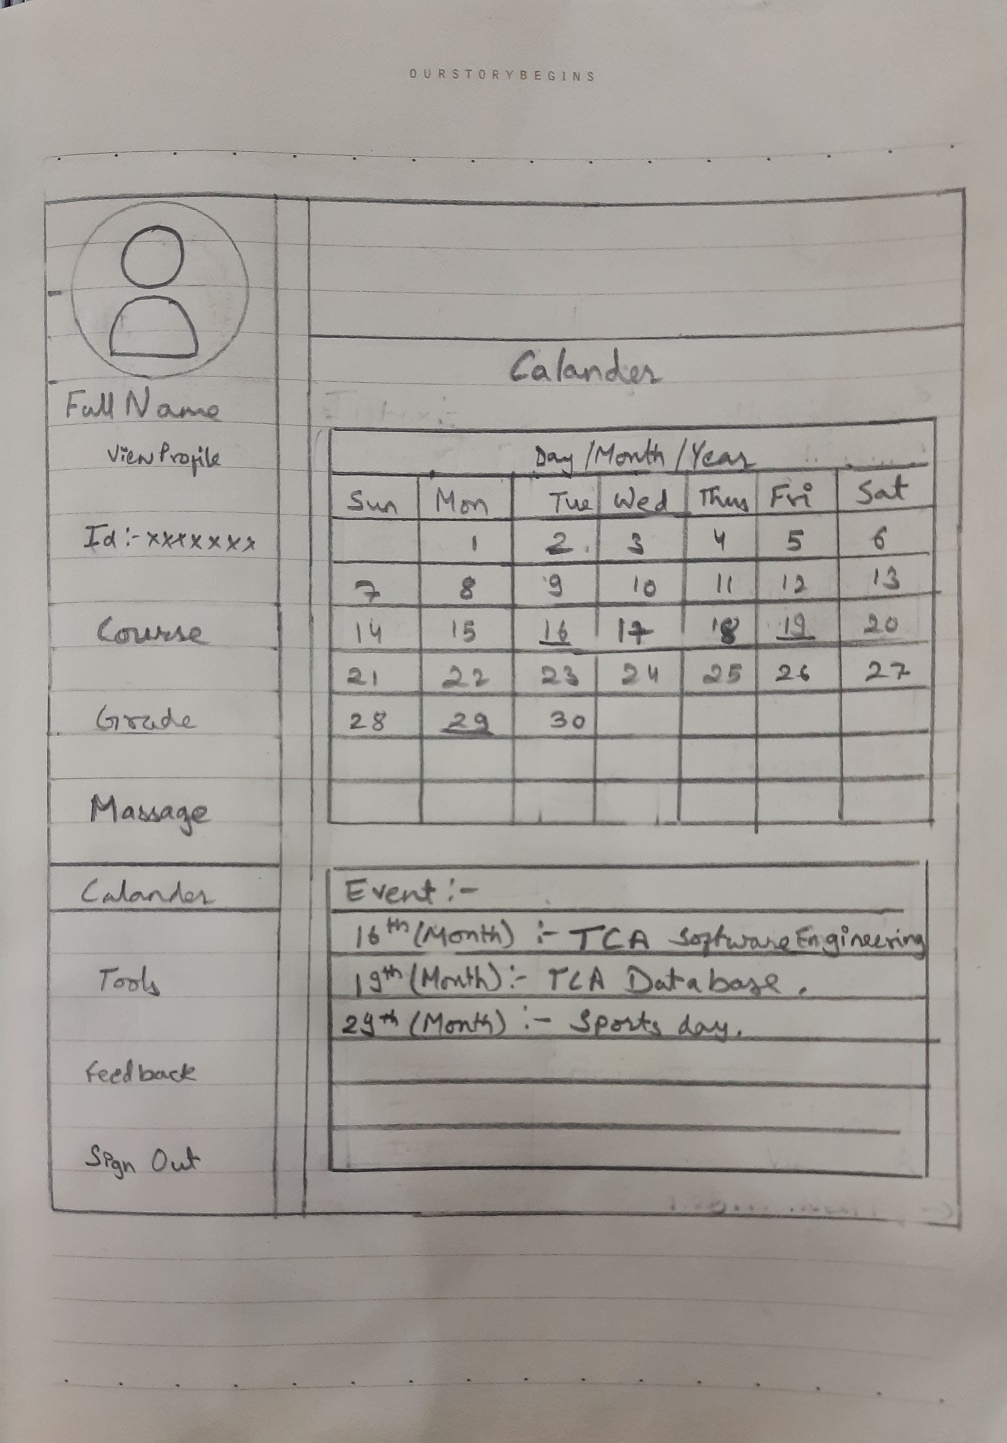 OURSTORYBEGINS
Full Name
View Profile
Id:- xxxxxxx
Course
Grade
Massage
Calander
Tools
Feedback
Sign Out
Calander
Day/Month/Year
Sun Mon Tue Wed Thus Fri Sat
1 2 3 4 5 6
7 8 9 10 11 12 13
14 15 16 17 18 19 20
21 22 23 24 25 26 27
28 29 30
Event:-
16th (Month) :- TCA Software Engineering
19th (Month):- TCA Database.
29th (Month) :- Sports day.